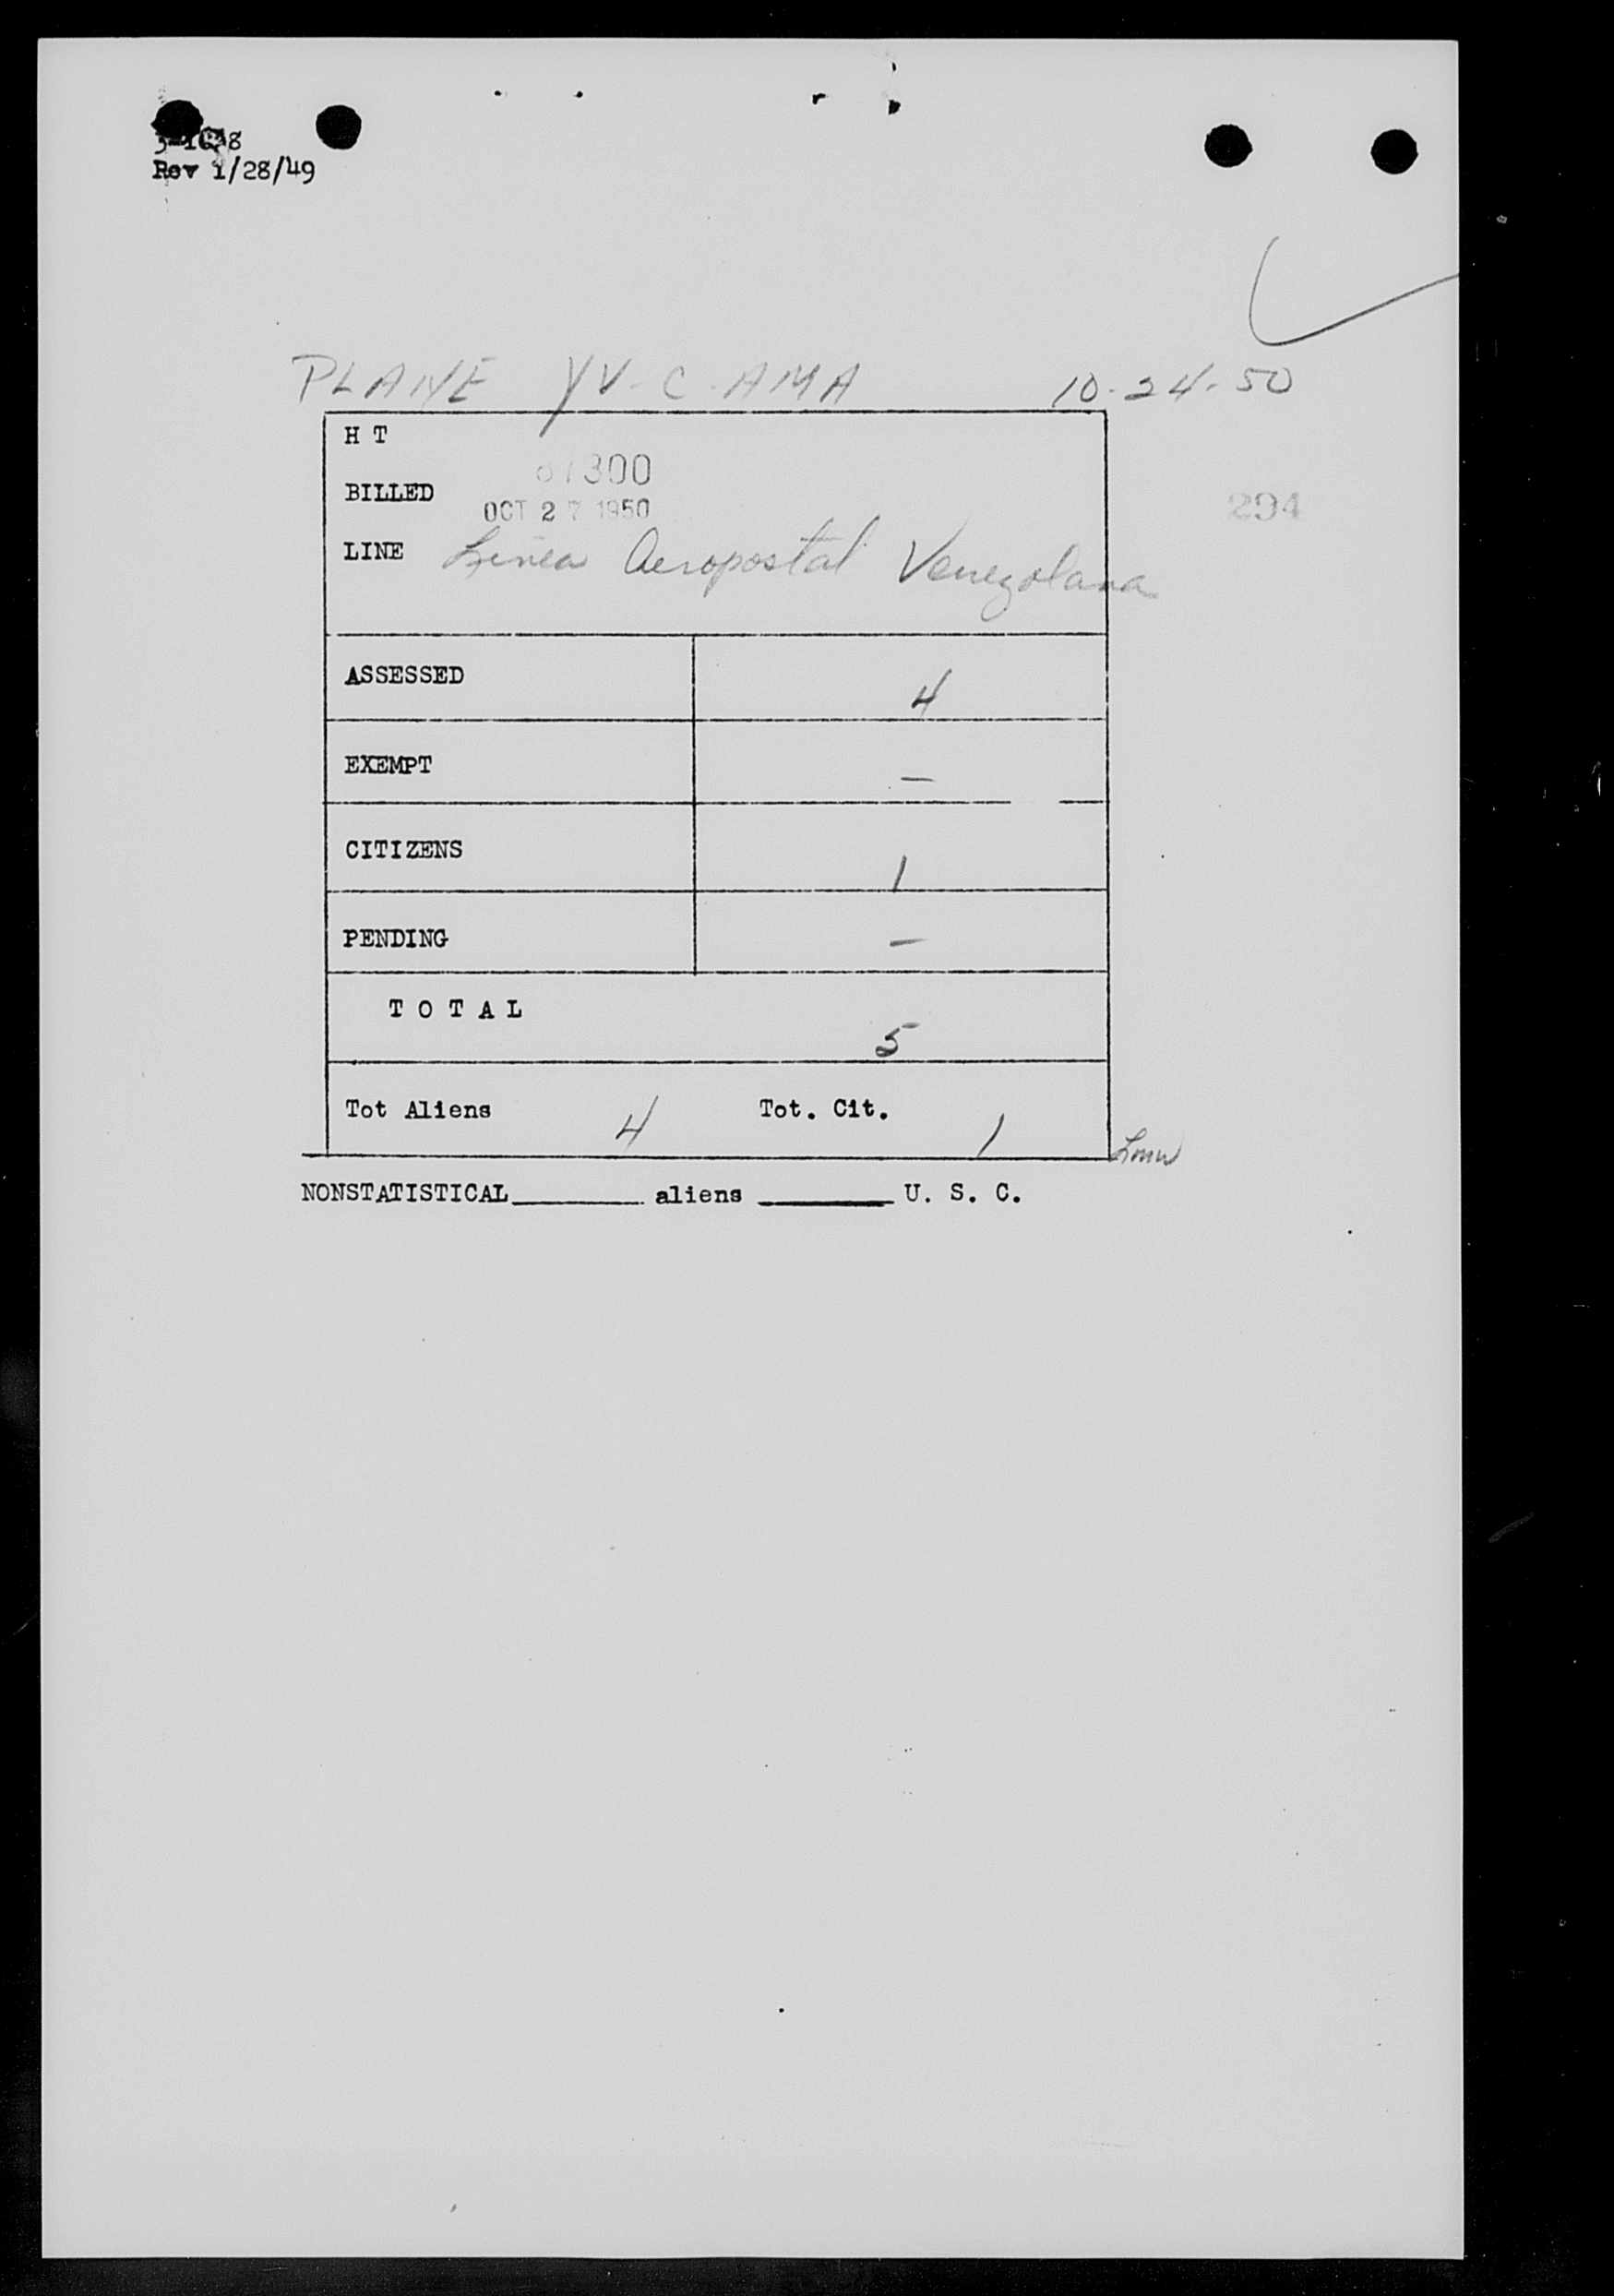 Rev 1/28/49
PLANE YV-C-AMA 10-24-50
H T
300
BILLED
OCT 27 1950
294
LINE Linea Aeropostal Venezolana
ASSESSED 4
EXEMPT —
CITIZENS 1
PENDING —
TOTAL 5
Tot Aliens 4 Tot. Cit. 1
NONSTATISTICAL________ aliens ________ U. S. C.